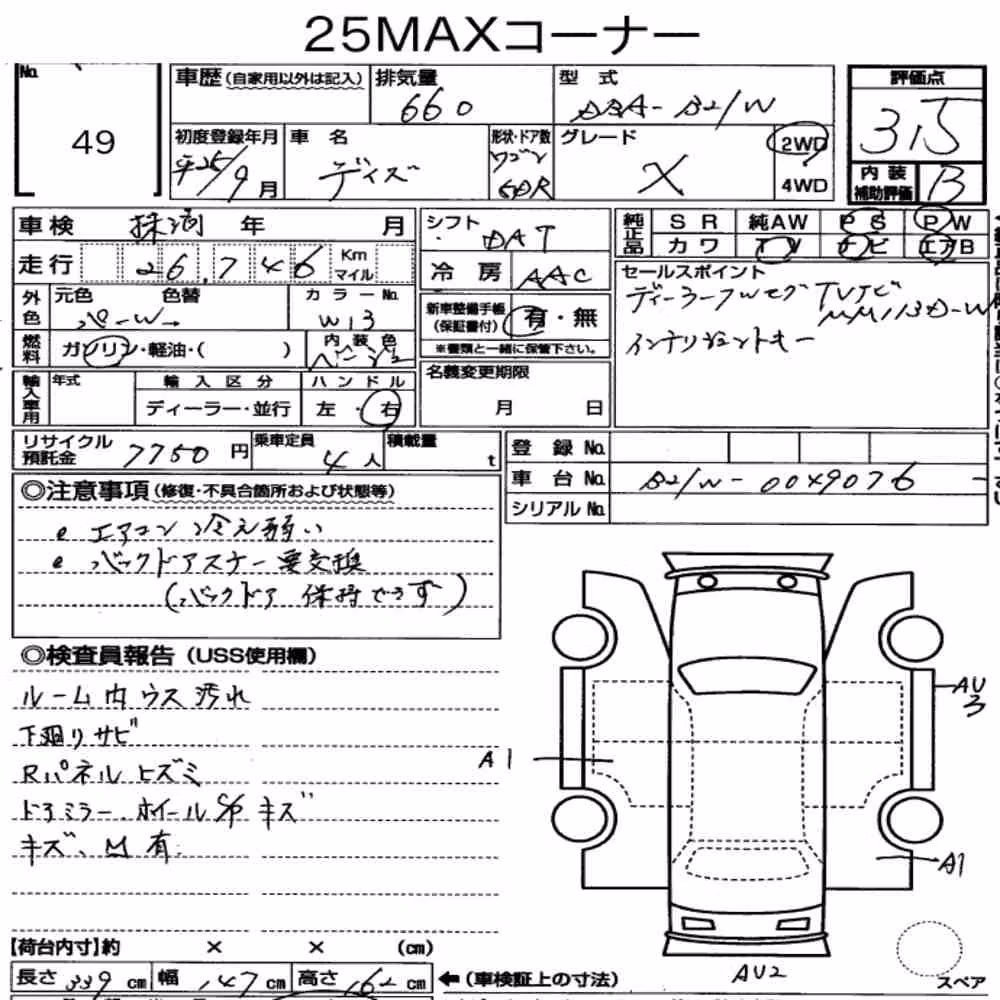 25MAXコーナー
No. 49
車歴(自家用以外は記入) 排気量 660 型式 DBA-B21W 評価点 3.5
初度登録年月 平25/9月 車名 デイズ 形状・ドア数 ワゴン 5DR グレード X 2WD 4WD
内装補助評価 B
車検 抹消 年 月 シフト DAT 純正品 SR 純AW PS PW
走行 26,746 Km マイル 冷房 AAC カワ TV ナビ エアB
外色 元色 色替 パーW カラーNo. W13
新車整備手帳(保証書付) 有・無
※書類と一緒に保管下さい。
セールスポイント
ディーラーフルセグTVナビ
MM113D-W
インテリジェントキー
燃料 ガソリン・軽油・( ) 内装色 ベージュ
輸入車用 年式 輸入区分 ハンドル
ディーラー・並行 左・右
名義変更期限
月 日
リサイクル預託金 7750円 乗車定員 4人 積載量 t
登録No.
車台No. B21W-0049076
シリアルNo.
◎注意事項(修復・不具合箇所および状態等)
エアコン冷え弱い
バックドアステー要交換
(バックドア 保持できず)
◎検査員報告(USS使用欄)
ルーム内ウス汚れ
下廻りサビ
Rパネルヒズミ
ドアミラー、ホイールC/P キズ
キズ、M有
AU3
A1
A1
AU2
スペア
【荷台内寸】約 × × (cm)
長さ 339 cm 幅 147 cm 高さ 162 cm ←(車検証上の寸法)